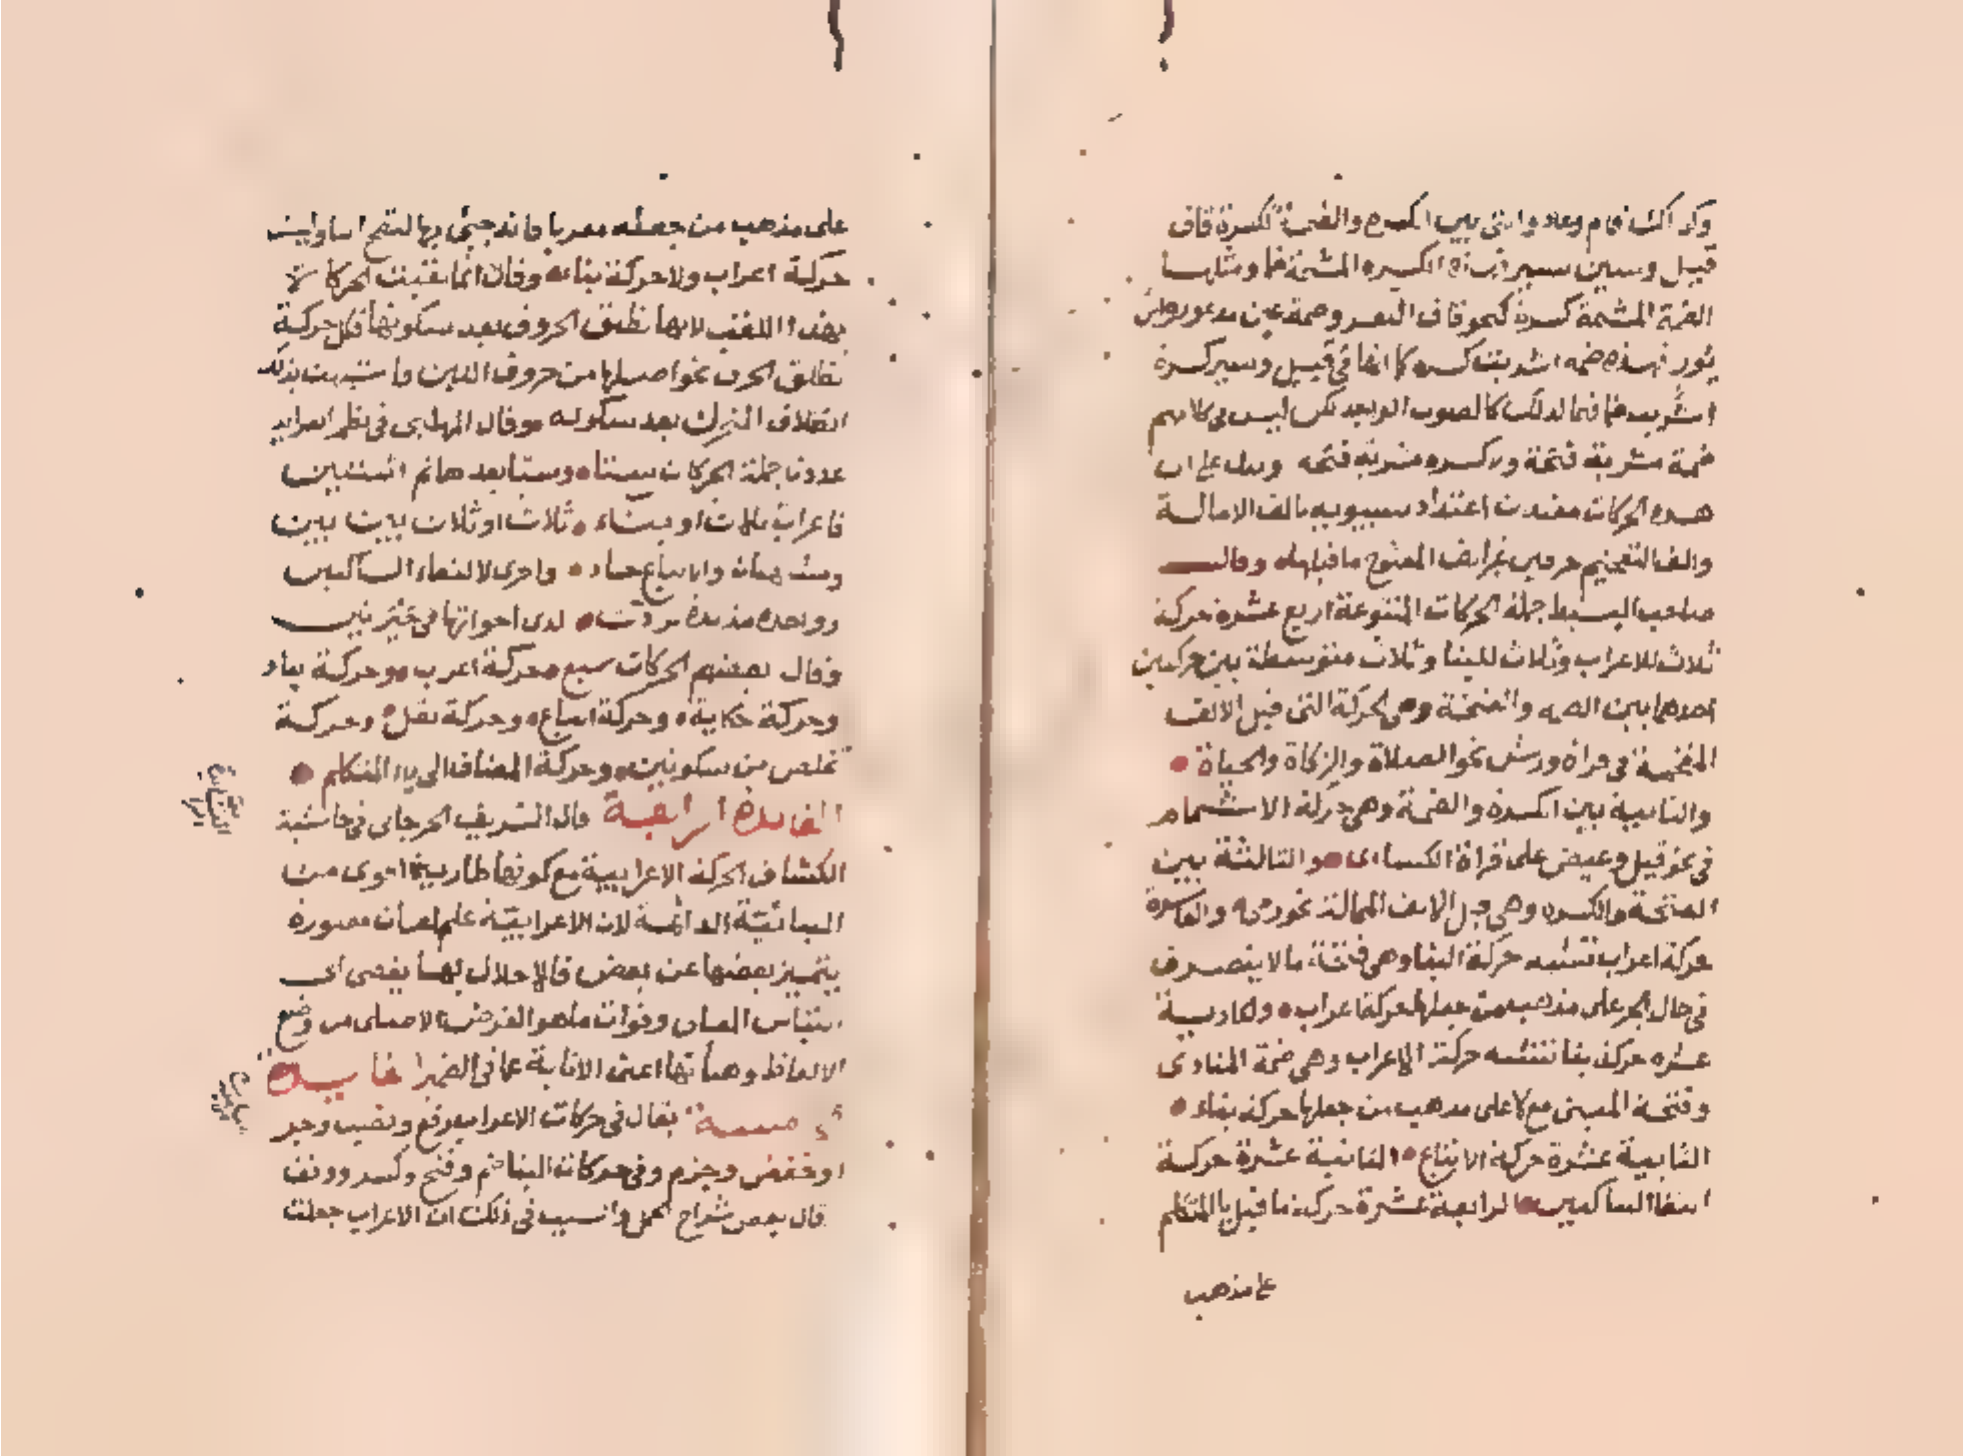 وكذلك ألف قام وعاد والتي بين الكسرة والضمة ككسرة قاف
قيل وسين سير فهذه الكسرة المشمة ضما ومثلها
الضمة المشمة كسرة كنحو قاف النقر وضمة عين مذعور وابن
بور فهذه ضمة اشربت كسرة كما انها في قيل وسير كسرة
اشربت ضما فهما لذلك كالصوت الواحد لكن ليس في كلامهم
ضمة مشربة فتحة ولا كسرة مشربة فتحة ويدل على ان
هذه الحركات معتدات اعتداد سيبويه بالف الامالة
والف التفخيم حرفين غير الف المفتوح ما قبلها وقال
صاحب البسيط جملة الحركات المتنوعة اربع عشرة حركة
ثلاث للاعراب وثلاث للبنا وثلاث متوسطة بين حركتين
احدها بين الضمة والفتحة وهي الحركة التي قبل الالف
المفخمة في قراة ورش نحو الصلاة والزكاة والحياة
والثانية بين الكسرة والضمة وهي حركة الاشمام
في نحو قيل وغيض على قراة الكسائي والثالثة بين
الفتحة والكسرة وهي قبل الالف الممالة نحو رمى والعاشرة
حركة اعراب تشبه حركة البنا وهي فتحة ما لا ينصرف
في حال الجر على مذهب من جعلها حركة اعراب والحادية
عشرة حركة بنا تشبه حركة الاعراب وهي ضمة المنادى
وفتحة المبني مع لا على مذهب من جعلها حركة بناء
الثانية عشرة حركة الاتباع الثالثة عشرة حركة
التقا الساكنين الرابعة عشرة حركة ما قبل يا المتكلم
على مذهب
على مذهب من جعله معربا فانه جيء بها لتصح اليا وليست
حركة اعراب ولا حركة بناء وقال انما لقبت الحركات
بهذا اللقب لانها تطلق الحروف بعد سكونها فكل حركة
تطلق الحرف نحو اصلها من حروف اللين فاشبهت بذلك
انطلاق المتحرك بعد سكونه وقال المهلبي في نظم الفرايد
عددنا جملة الحركات ستا وستا بعدها ثم اثنتين
فاعراب ثلاث او بناء ثلاث او ثلاث بين بين
ومشبهتان والاتباع حاد واخرى لالتقاء الساكنين
وواحدة مذبذبة تردت لدى اخواتها في حيرتين
وقال بعضهم الحركات سبع حركة اعراب وحركة بناء
وحركة حكاية وحركة اتباع وحركة نقل وحركة
تخلص من سكونين وحركة المضاف الى ياء المتكلم
الفايدة الرابعة قال الشريف الجرجاني في حاشية
الكشاف الحركة الاعرابية مع كونها طارية اقوى من
البنائية الدائمة لان الاعرابية علم لمعان معتورة
يتميز بعضها عن بعض فالاخلال بها يفضي الى
التباس المعاني وفوات ما هو الغرض الاصلي من وضع
الالفاظ وهيأتها اعني الابانة عما في الضمير الفايدة
الخامسة يقال في حركات الاعراب رفع ونصب وجر
او خفض وجزم وفي حركات البنا ضم وفتح وكسر ووقف
قال بعض شراح الجمل والسبب في ذلك ان الاعراب جعلت